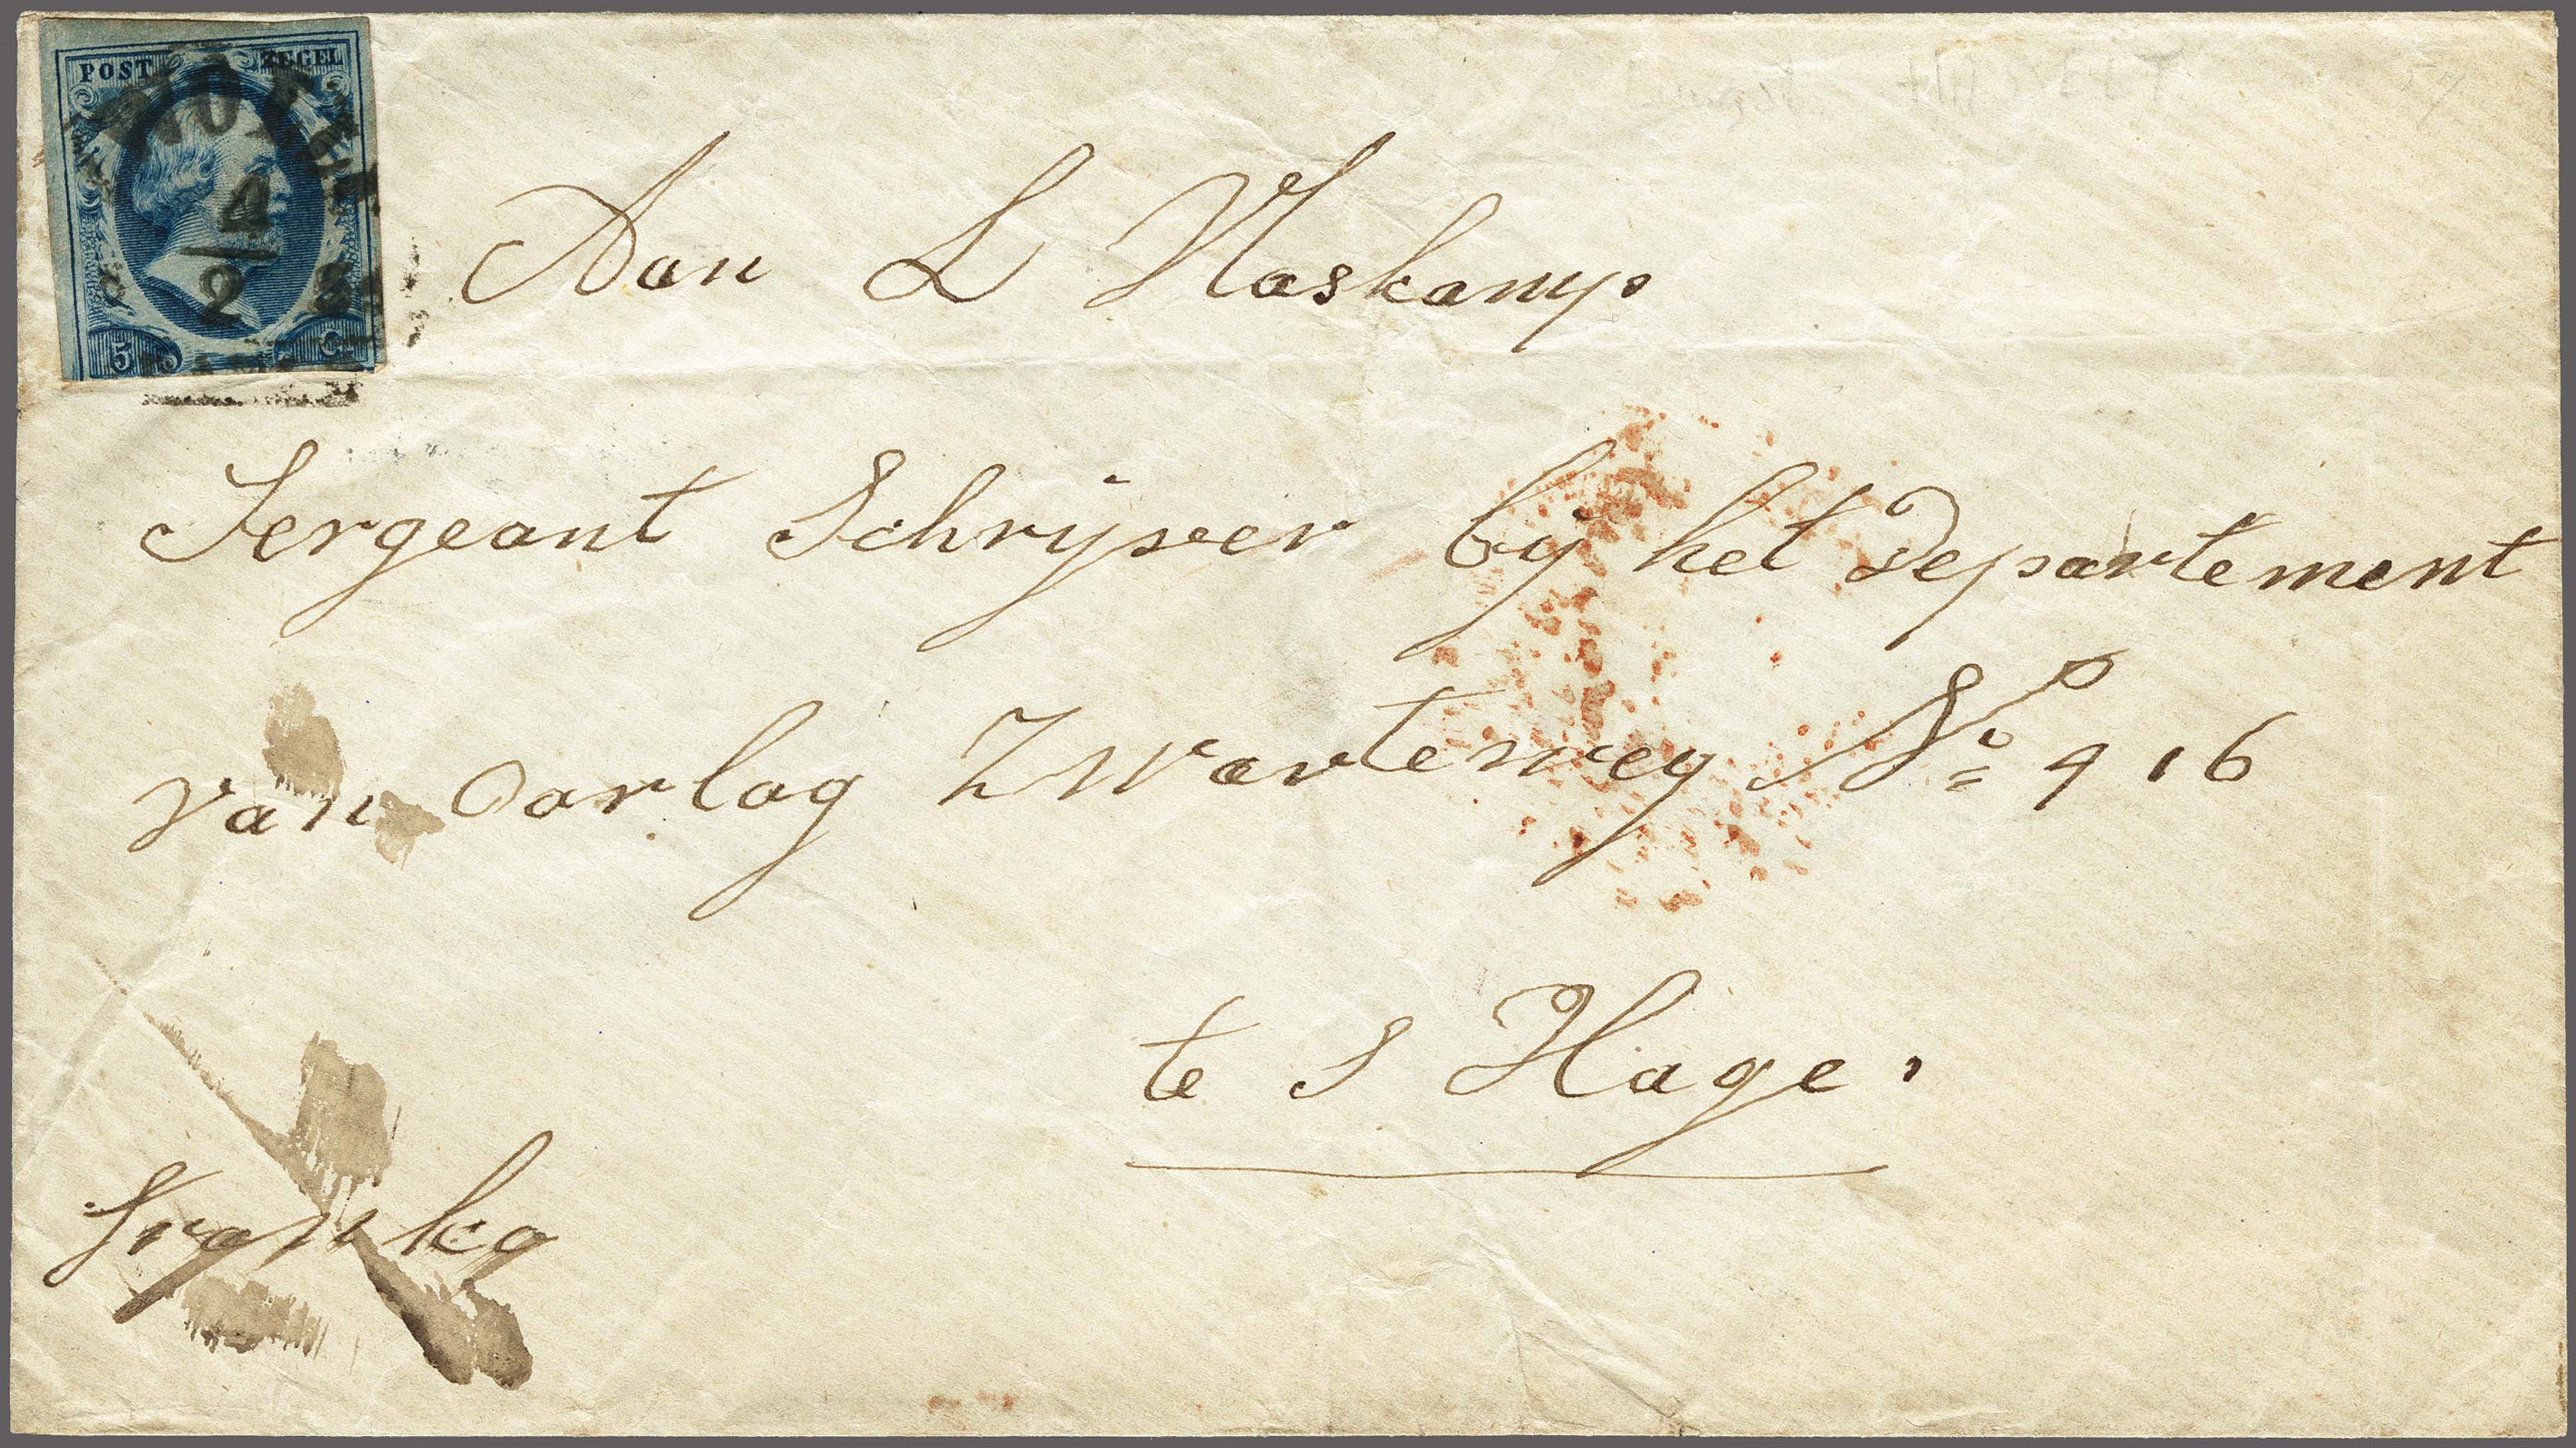 POST ZEGEL
4
2
5 C
Aan L Haskamp
Sergeant Schrijver bij het departement
van Oorlog Zwarteweg No 916
te s Hage.
franko